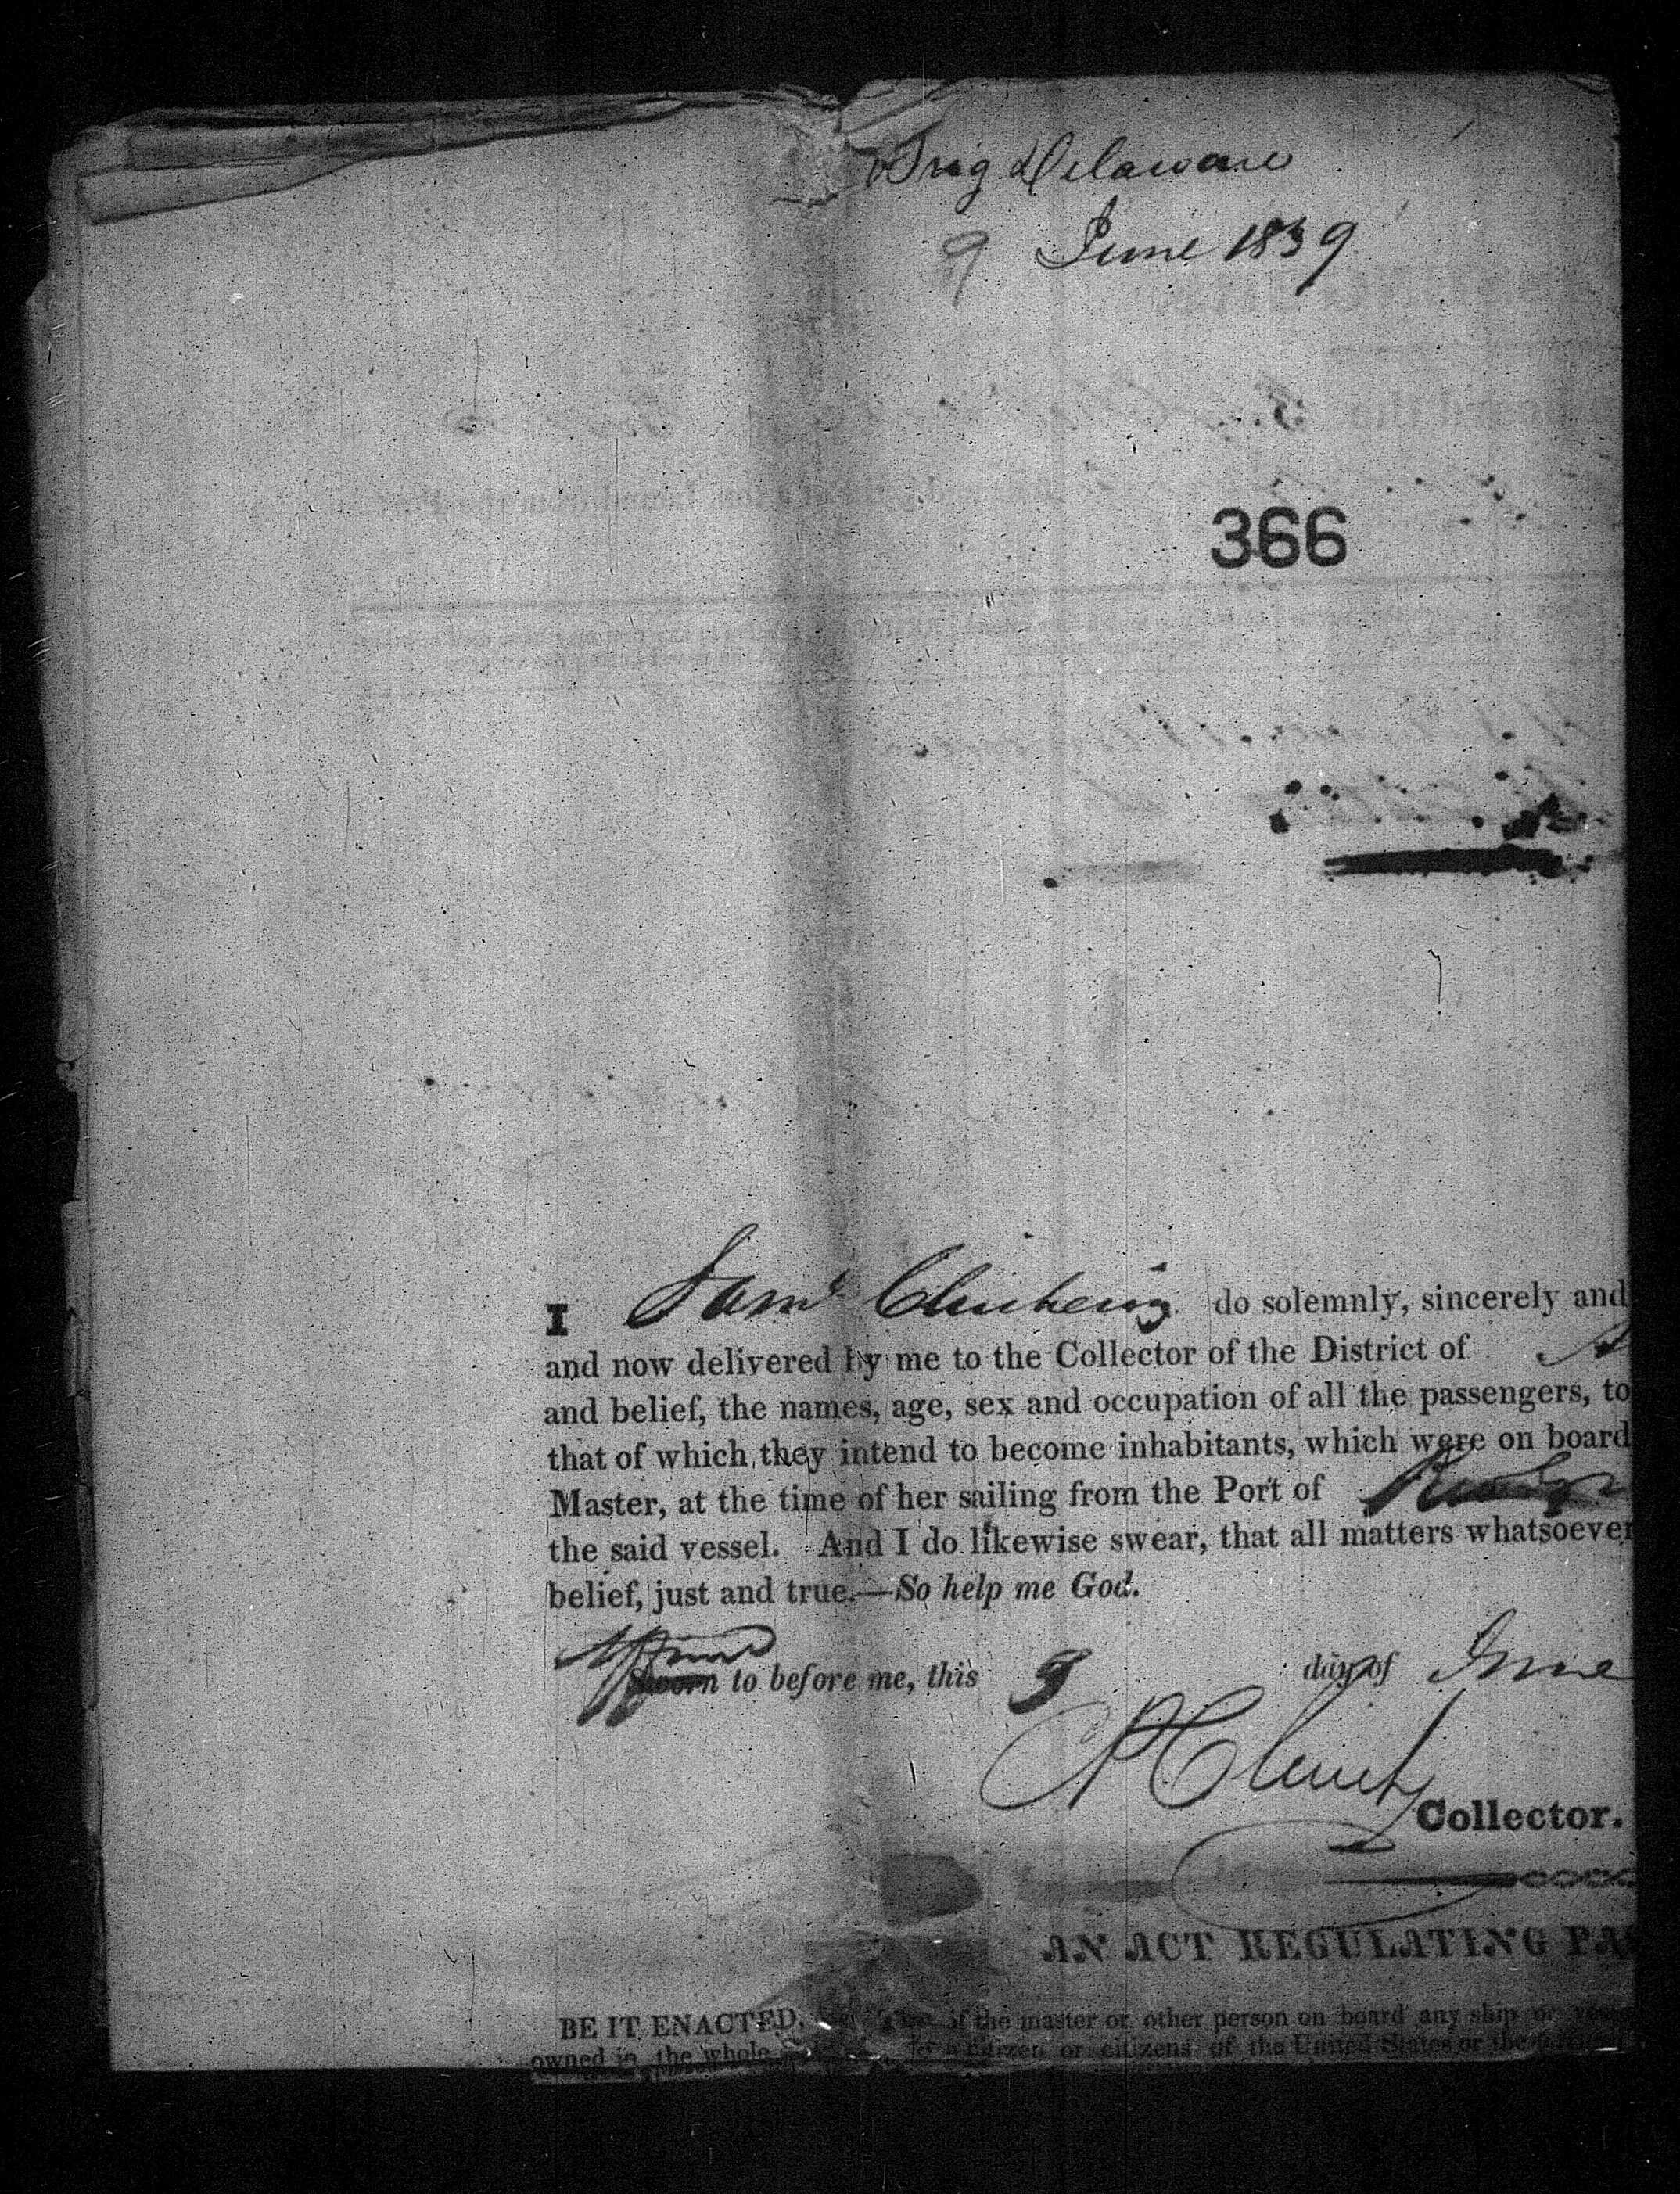 Brig Delaware
9 June 1839
366
I Saml do solemnly, sincerely and
and now delivered by me to the Collector of the District of
and belief, the names, age, sex and occupation of all the passengers, to
that of which they intend to become inhabitants, which were on board
Master, at the time of her sailing from the Port of
the said vessel. And I do likewise swear, that all matters whatsoever
belief, just and true.—So help me God.
Sworn to before me, this 9 day of June
Collector.
AN ACT REGULATING PA
BE IT ENACTED, if the master or other person on board any ship or
owned in the whole citizen or citizens of the United States or the